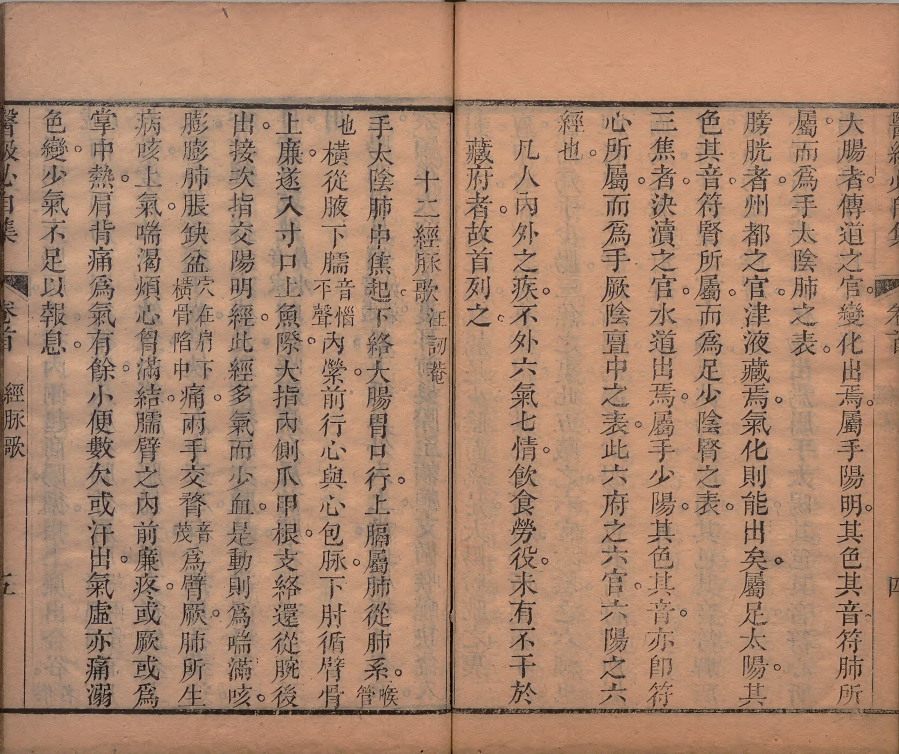 大腸者傳道之官變化出焉屬手陽明其色其音符肺所
屬而爲手太陰肺之表
膀胱者州都之官津液藏焉氣化則能出矣屬足太陽其
色其音符腎所屬而爲足少陰腎之表
三焦者決瀆之官水道出焉屬手少陽其色其音亦卽符
心所屬而爲手厥陰亶中之表此六府之六官六陽之六
經也
凡人內外之疾不外六氣七情飲食勞役未有不干於
藏府者故首列之
十二經脉歌 汪訒菴
手太陰肺中焦起下絡大腸胃口行上膈屬肺從肺系喉管
也橫從腋下臑音惱不聲內縈前行心與心包脉下肘循臂骨
上廉遂入寸口上魚際大指內側爪甲根支絡還從腕後
出接次指交陽明經此經多氣而少血是動則爲喘滿咳
膨膨肺脹缺盆穴在肩下橫骨陷中痛兩手交瞀音茂爲臂厥肺所生
病咳上氣喘渴煩心胷滿結臑臂之內前廉疼或厥或爲
掌中熱肩背痛爲氣有餘小便數欠或汗出氣虛亦痛溺
色變少氣不足以報息
卷首
經脉歌
五